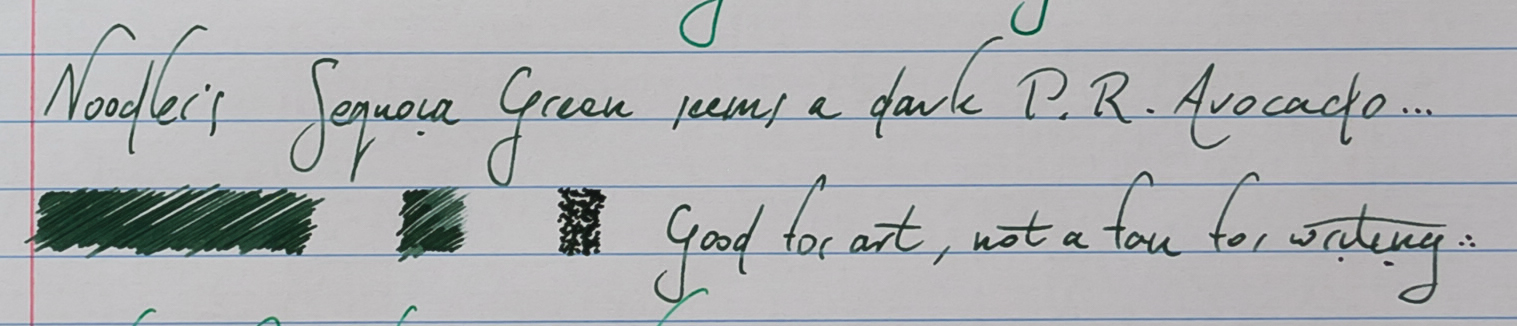 Noodler's Sequoia Green seems a dark P.R. Avocado...
Good for art, not a fan for writing..